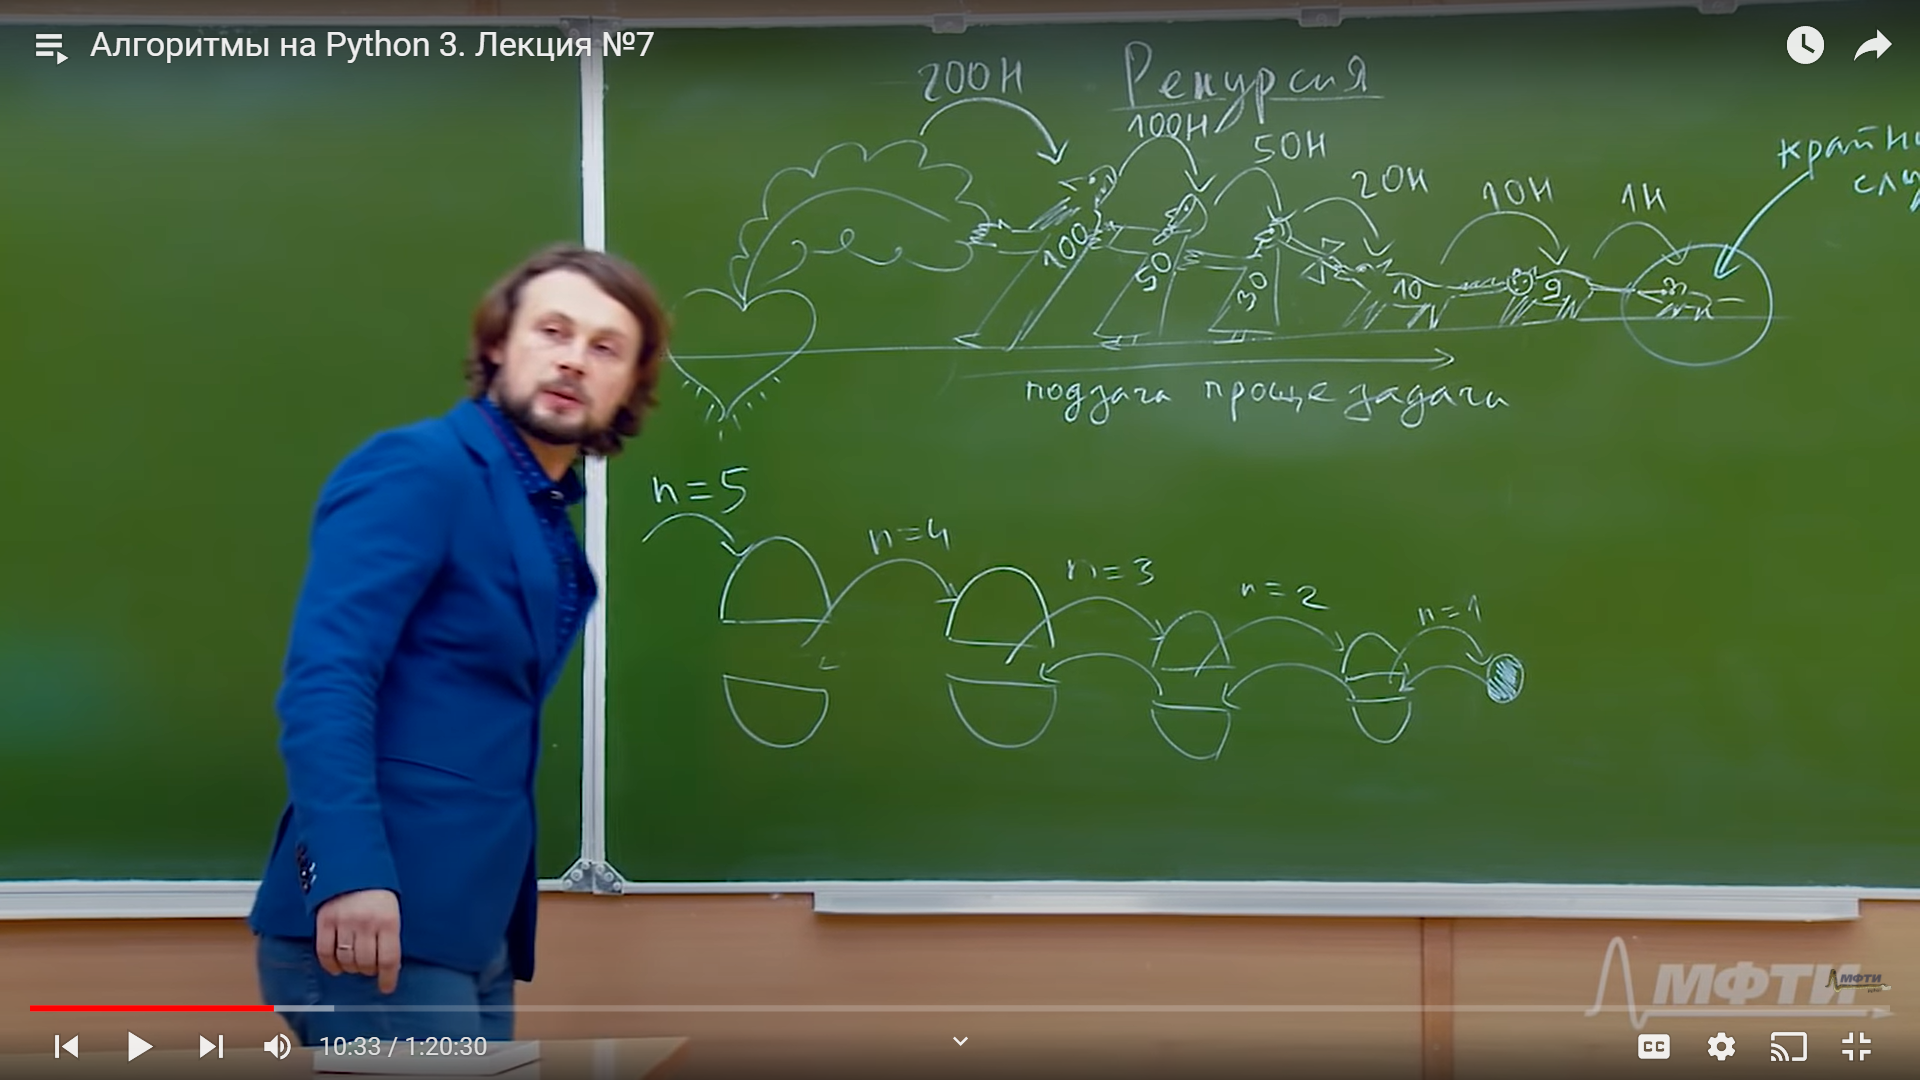 Алгоритмы на Python 3. Лекция №7
Рекурсия
200Н
100Н
50Н
20Н
10Н
1Н
крайн
слу
100
50
30
10
9
подзача проще задачи
n=5
n=4
n=3
n=2
n=1
МФТИ
МФТИ
10:33 / 1:20:30
CC